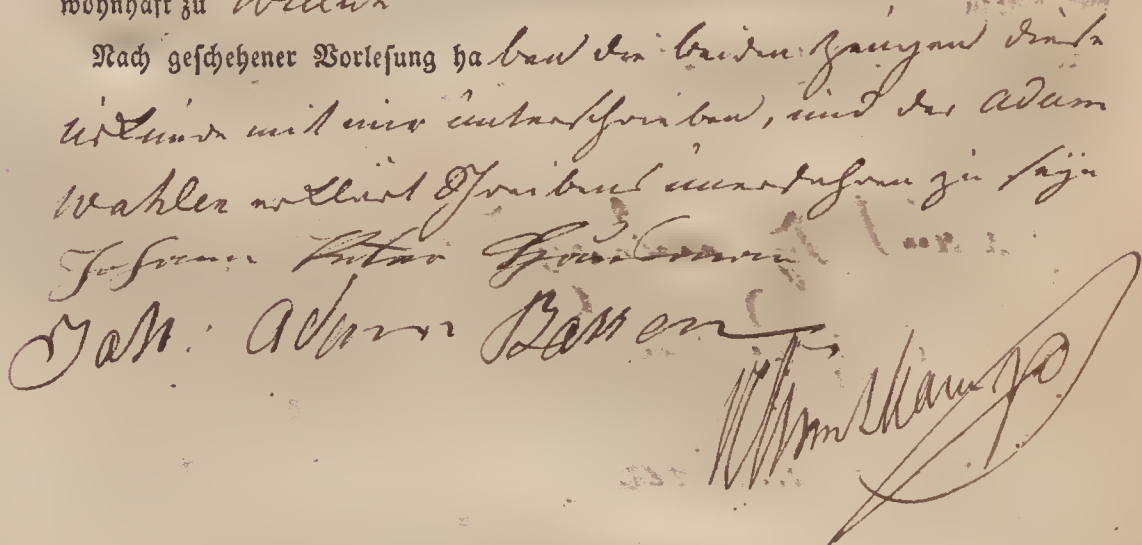 wohnhaft zu
Nach geschehener Vorlesung haben die beiden Zeugen diese
urkunde mit mir unterschrieben, und der adam
wahlen erklärt Schreibens unerfahren zu seÿn
Johann Peter
Joh: Adam Bassen